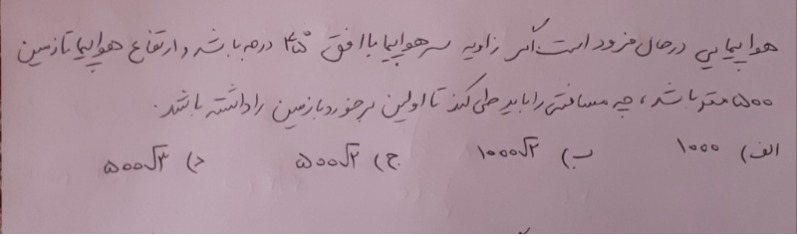 هواپیمایی در حال فرود است. اگر زاویه سر هواپیما با افق ۴۵° درجه باشد و ارتفاع هواپیما تا زمین
۵۰۰ متر باشد، چه مسافتی را باید طی کند تا اولین برخورد با زمین را داشته باشد.
الف) ۱۰۰۰ ب) ۱۰۰۰√۲ ج) ۵۰۰√۲ د) ۵۰۰√۳